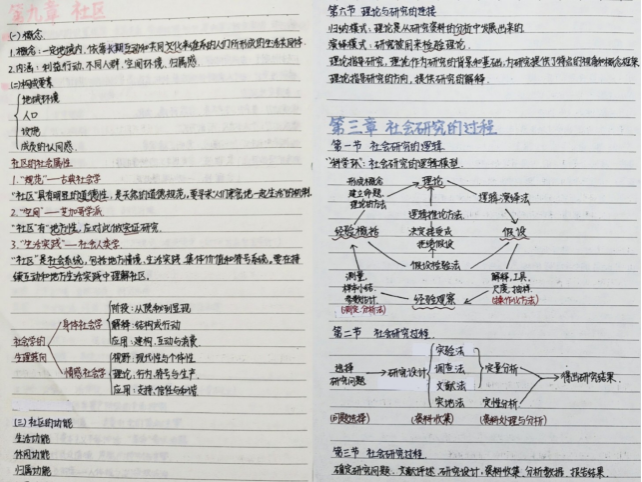 第九章 社区
(一)概念
1.概念:一定地域内,依靠长期互动和共同文化来维系的人们所形成的生活共同体.
2.内涵:利益行动,不同人群,空间环境,归属感.
(二)构成要素
地域环境
人口
设施
成员的认同感.
社区的社会属性
1."规范"——古典社会学
"社区"具有明显的道德性,是天然的道德规范,要寻求人们紧密地一起生活的机制.
2."空间"——芝加哥学派
"社区"有地方性,应对此做实证研究.
3."生活实践"——社会人类学
"社区"是社会系统,包括地方情境,生活实践,集体价值和符号系统,要在持
续互动和地方生活实践中理解社区.
社会学的
生理转向
身体社会学
阶段:从隐秘到显现
解释:结构或行动
应用:建构,互动与消费.
情感社会学
视野:现代性与个体性
理论:行为,符号与生产.
应用:支持,信任与和谐
(三)社区的功能
生活功能
休闲功能
归属功能
第六节 理论与研究的连接
归纳模式:理论是从研究资料的分析中发展出来的.
演绎模式:研究被用来检验理论.
理论指导研究,理论作为研究的背景和基础,为研究提供了特定的视角和概念框架
理论指导研究的方向,提供研究的解释.
第三章 社会研究的过程
第一节 社会研究的逻辑
"科学环":社会研究的逻辑模型.
形成概念
建立命题
理论的方法
理论
逻辑演绎法
逻辑推论方法
经验概括
决定接受或
拒绝假设
假设
假设检验法
测量
样本小结
参数估计
(测定,分析法)
经验观察
解释,工具,
尺度,抽样
(操作化方法)
第二节 社会研究过程.
选择
研究问题
研究设计
实验法
调查法
文献法
实地法
定量分析
定性分析
得出研究结果.
(问题选择) (资料收集) (资料处理与分析)
第三节 社会研究过程.
确定研究问题,文献评述,研究设计,资料收集,分析数据,报告结果.